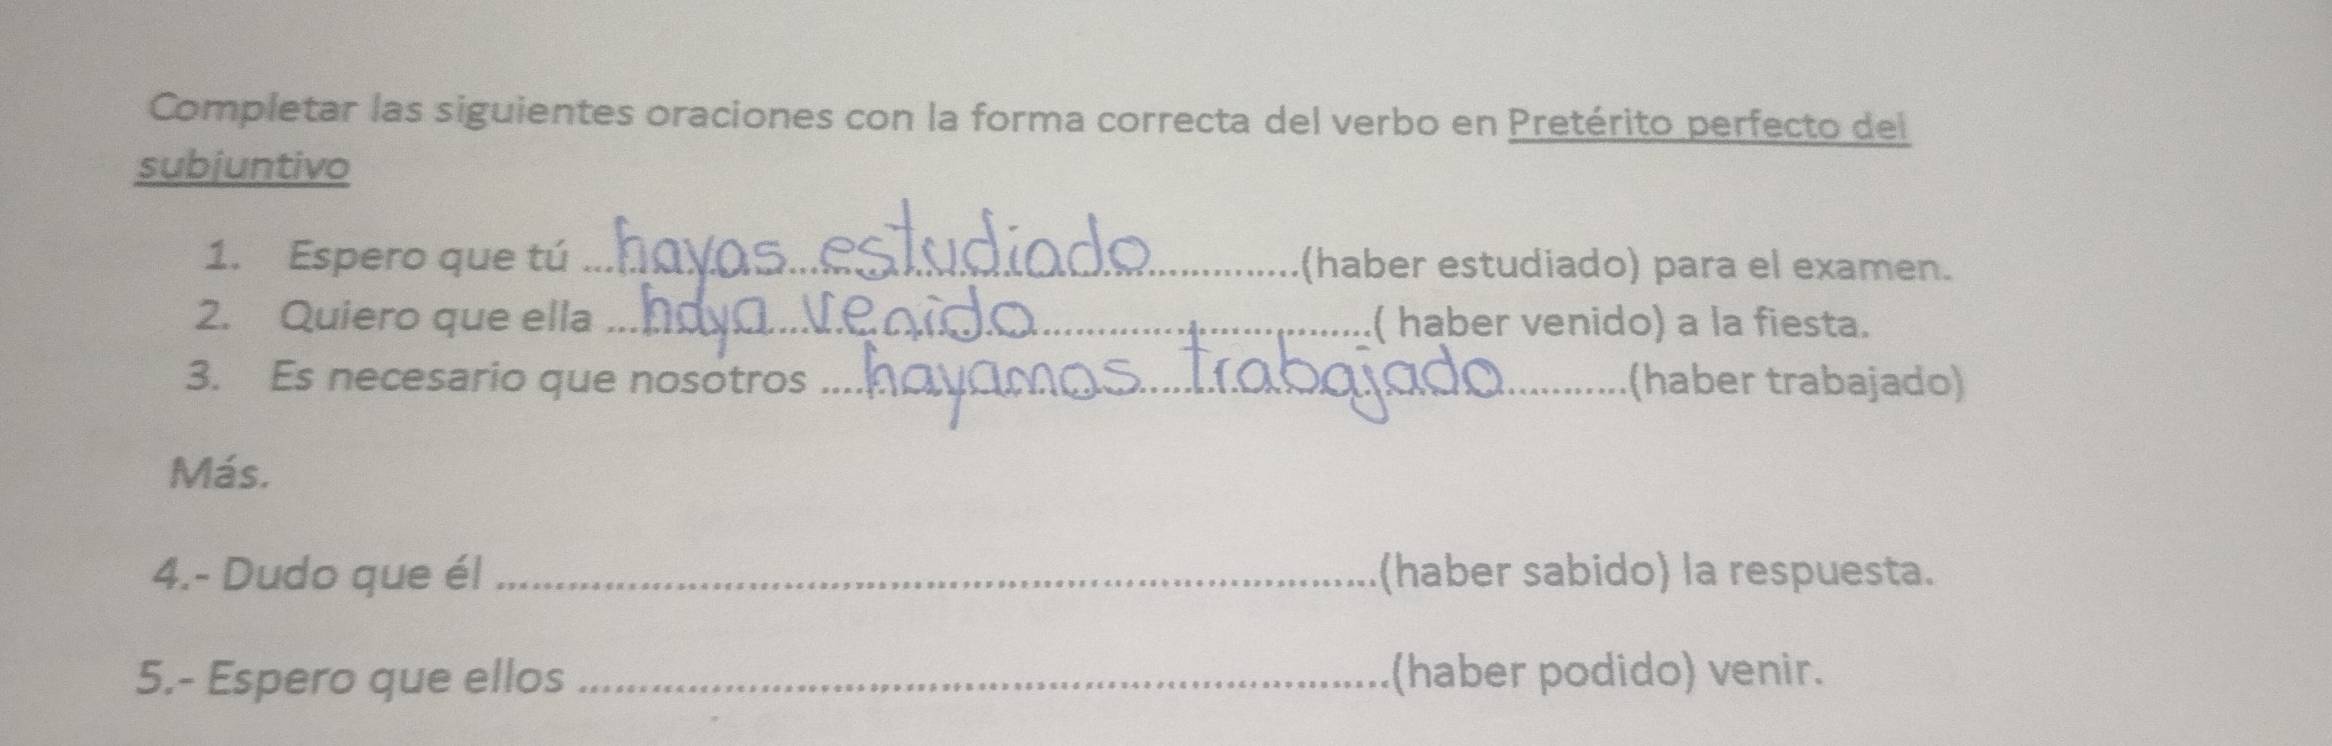 Completar las siguientes oraciones con la forma correcta del verbo en Pretérito perfecto del
subjuntivo
1. Espero que tú ...hayas estudiado...(haber estudiado) para el examen.
2. Quiero que ella ...haya venido...( haber venido) a la fiesta.
3. Es necesario que nosotros ...hayamos trabajado...(haber trabajado)
Más.
4.- Dudo que él ...(haber sabido) la respuesta.
5.- Espero que ellos ...(haber podido) venir.